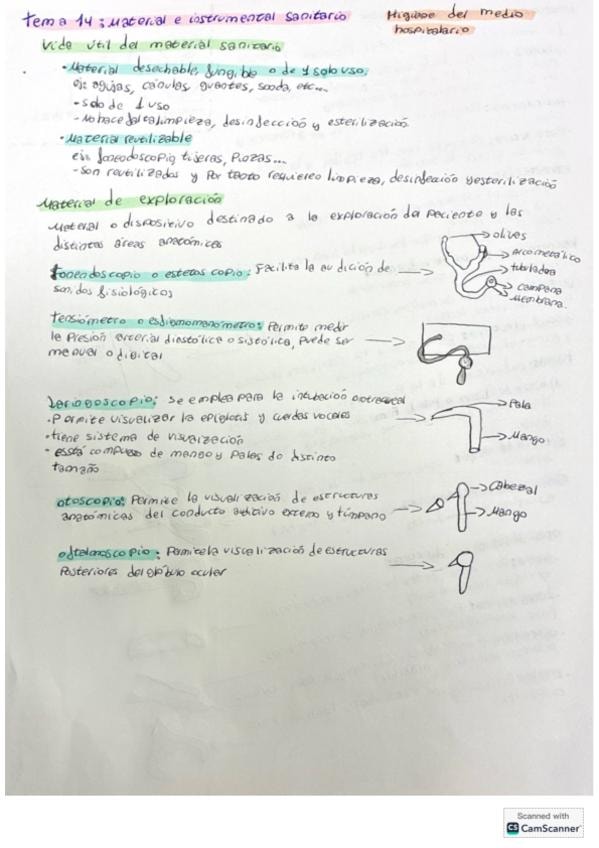 Tema 14: Material e instrumental sanitario
Higiene del medio
hospitalario
Vida útil del material sanitario
• Material desechable, fungible o de 1 solo uso.
ej: agujas, cánulas, guantes, sonda, etc...
- Solo de 1 uso
- No hace falta limpieza, desinfección y esterilización
• Material reutilizable
ej: fonendoscopio, tijeras, pinzas...
- Son reutilizados y por tanto requieren limpieza, desinfección y esterilización
Material de exploración
Material o dispositivo destinado a la exploración da paciente y las
distintas áreas anatómicas
fonendoscopio o estetoscopio: Facilita la audición de
sonidos fisiológicos
olivas
arco metálico
tubuladura
campana
Membrana.
Tensiómetro o esfigmomanómetro: Permite medir
la presión arterial diastólica o sistólica, puede ser
manual o digital
Laringoscopio: se emplea para la intubación orotraqueal
• Permite visualizar la epiglotis y cuerdas vocales
• tiene sistema de visualización
• está compueso de mango y palas de distinto
tamaño
Pala
Mango
otoscopio: Permite la visualización de estructuras
anatómicas del conducto auditivo externo y tímpano
Cabezal
Mango
oftalmoscopio: Permite la visualización de estructuras
Posteriores del glóbulo ocular
Scanned with
CS CamScanner